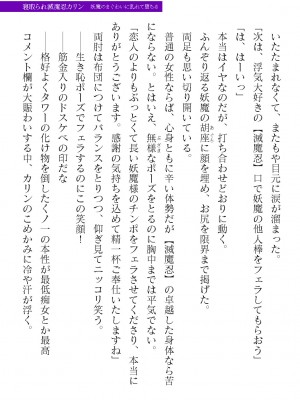 寝取られ滅魔忍カリン　妖魔のまぐわいに乱れて堕ちる
いたたまれなくて、またもや目元に涙が溜まった。
「次は、浮気大好きの【滅魔忍】口で妖魔の他人棒をフェラしてもらおう」
「は、はーいっ」
本当はイヤなのだが、打ち合わせどおりに動く。
ふんぞり返る妖魔の胡座に顔を埋め、お尻を限界まで掲げた。
両足も思い切り開いている。
普通の女性ならば、心身ともに辛い体勢だが【滅魔忍】の卓越した身体なら苦
にならない。とはいえ、無様なポーズをとるのに胸中までは平気でない。
「恋人のよりもぶっとくて長い妖魔様のチンポをフェラさせてくださり、本当に
ありがとうございます。感謝の気持ちを込めて精一杯ご奉仕いたしますね」
両肘は布団につけてバランスをとりつつ、仰ぎ見てニッコリ笑う。
――生き恥ポーズでフェラするのにこの笑顔！
――筋金入りのドスケベの印だな
――格好よくタワーの化け物を倒したくノ一の本性が最低痴女とか最高
コメント欄が大賑わいする中、カリンのこめかみに冷や汗が浮く。